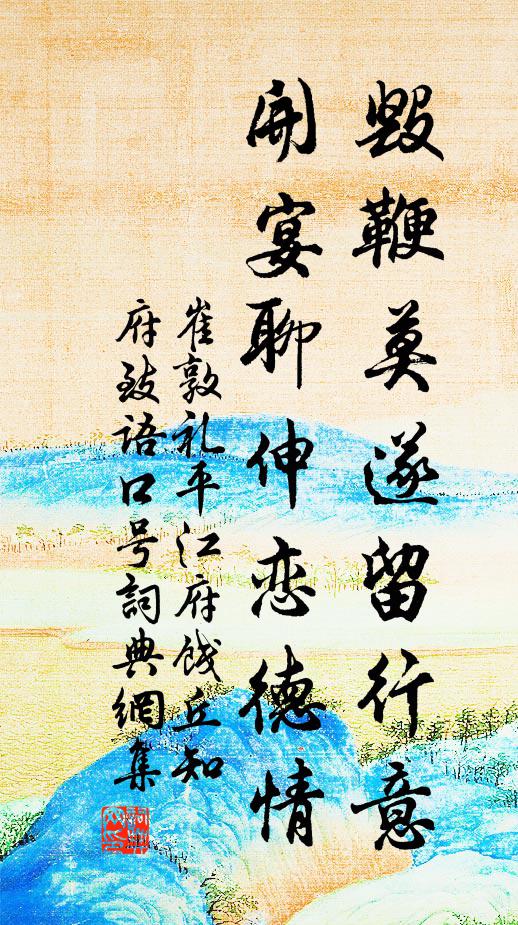 毁鞭莫遂留行意
开宴聊伸恋德情
崔敦礼平江府饯丘知
府致语口号詞典網集